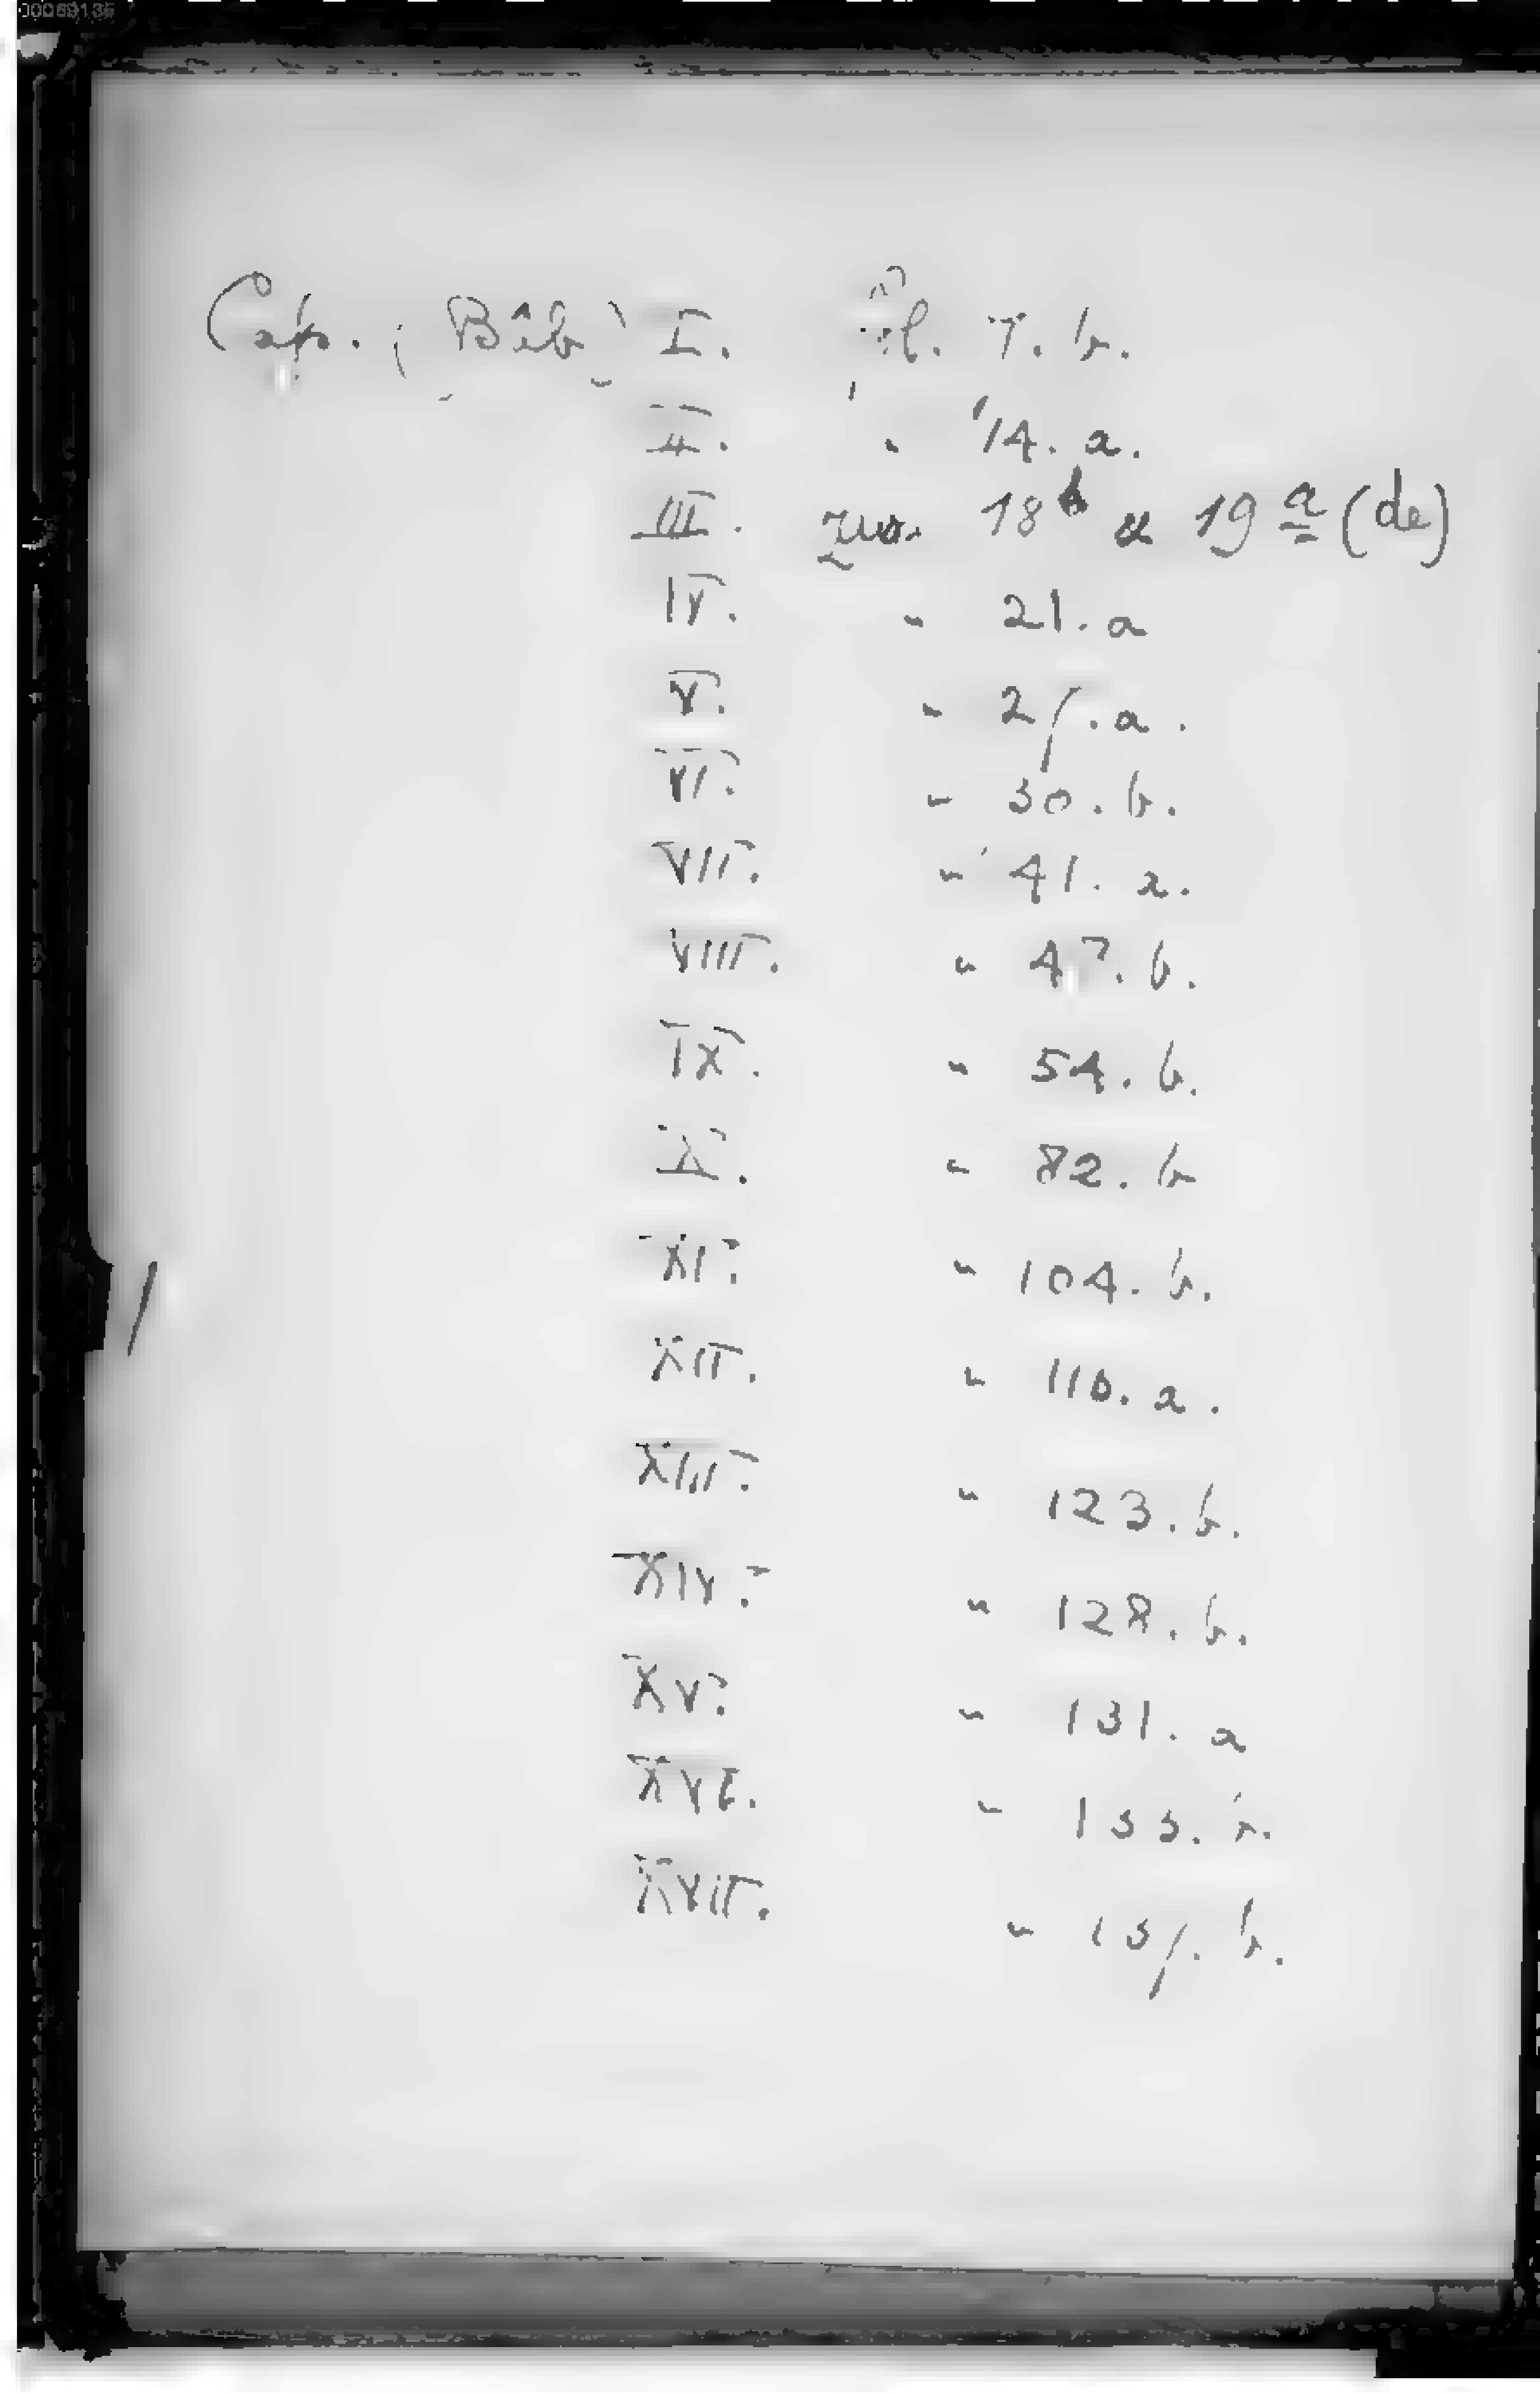 00069135
Cap. (Bâb) I. fol. 7. b.
II. " 14. a.
III. zw. 18 b u 19 a (de)
IV. " 21. a
V. " 27. a.
VI. " 30. b.
VII. " 41. a.
VIII. " 47. b.
IX. " 54. b.
X. " 82. b
XI. " 104. b.
XII. " 110. a.
XIII. " 123. b.
XIV. " 128. b.
XV. " 131. a
XVI. " 133. b.
XVII. " 137. b.